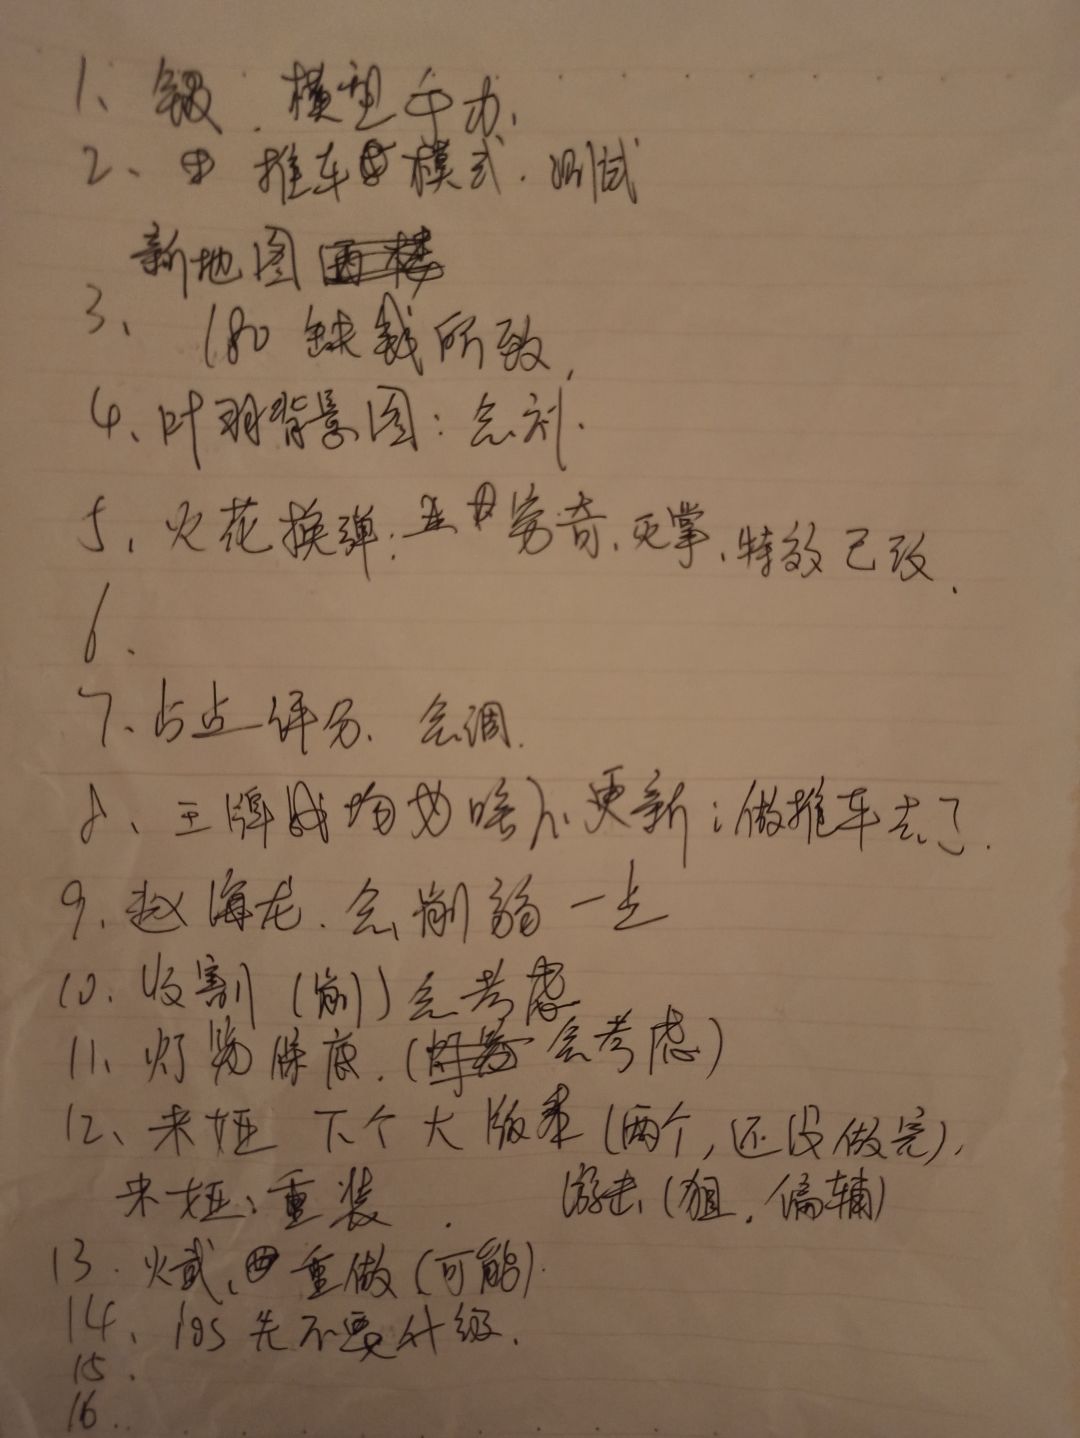 1、锻.模型手办.
2、推车模式.测试
新地图
3、180 缺钱所致,
4、叶羽背景图:会补.
5、火花换弹:穷奇、灭掌、特效已改.
6.
7、占点评分、会调.
8、王牌战场为啥不更新:做推车去了.
9、赵海龙.会削弱一点
10.收割(削)会考虑
11.灯笼保底.(会考虑)
12、来娅 下个大版本(两个,还没做完),
来娅:重装. 游击(狙.偏辅)
13.火武、重做(可能).
14、ios先不要升级.
15.
16.